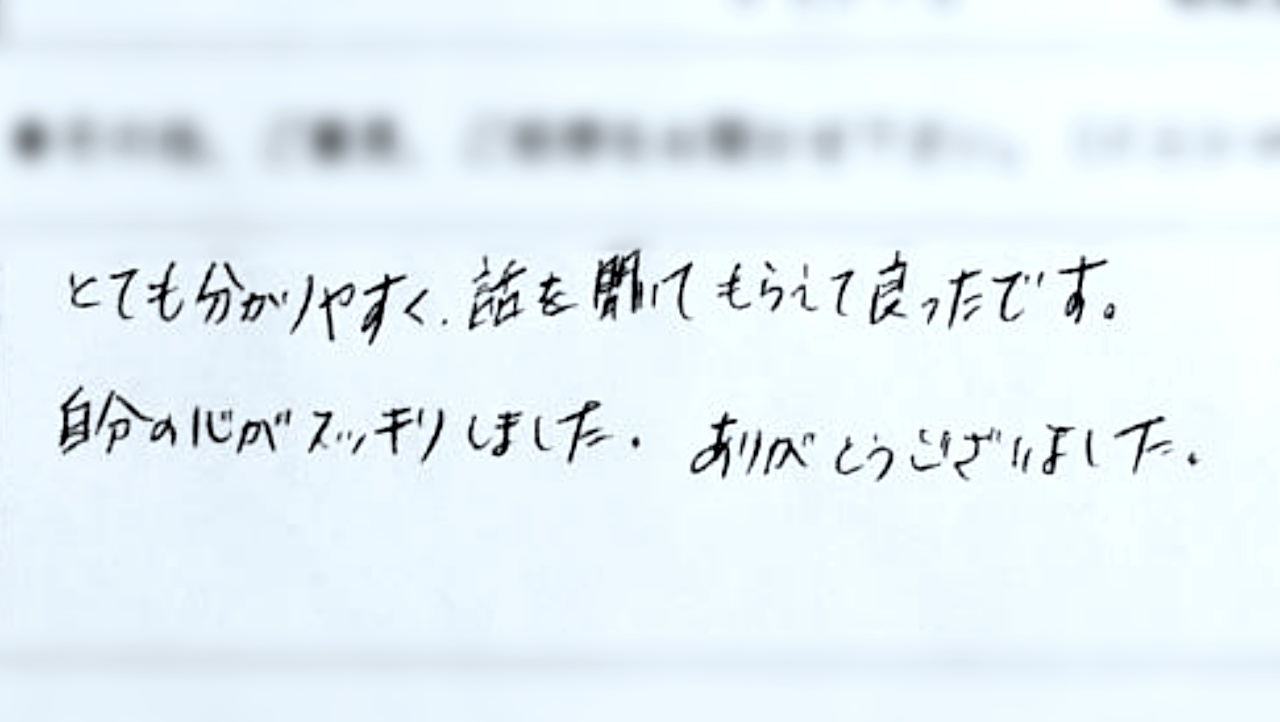 とても分かりやすく、話を聞いてもらえて良ったです。
自分の心がスッキリしました。ありがとうございました。